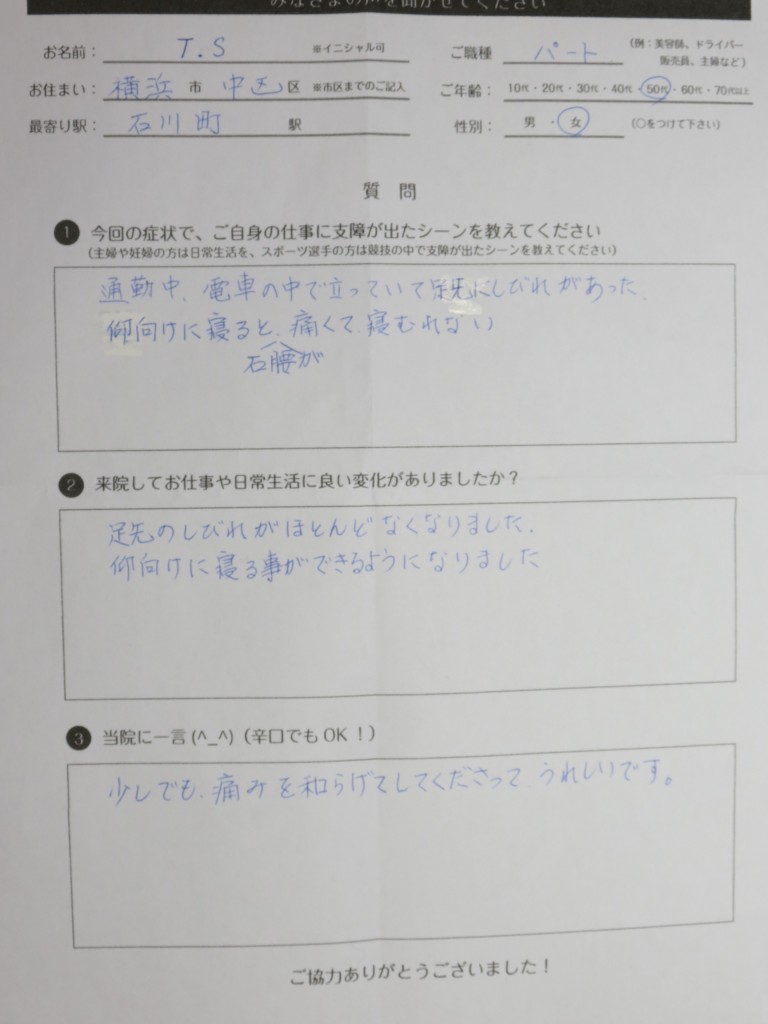 みなさまの声を聞かせてください
お名前： T.S ※イニシャル可 ご職種 パート （例：美容師、ドライバー 販売員、主婦など）
お住まい： 横浜 市 中区 区 ※市区までのご記入 ご年齢： 10代・20代・30代・40代・50代・60代・70代以上
最寄り駅： 石川町 駅 性別： 男 ・ 女 （○をつけて下さい）
質 問
1 今回の症状で、ご自身の仕事に支障が出たシーンを教えてください
（主婦や妊婦の方は日常生活を、スポーツ選手の方は競技の中で支障が出たシーンを教えてください）
通勤中、電車の中で立っていて足先にしびれがあった、
仰向けに寝ると、痛くて、寝むれない
右腰が
2 来院してお仕事や日常生活に良い変化がありましたか？
足先のしびれがほとんどなくなりました、
仰向けに寝る事ができるようになりました
3 当院に一言(^_^)（辛口でもOK！）
少しでも、痛みを和らげてしてくださって、うれしいです。
ご協力ありがとうございました！